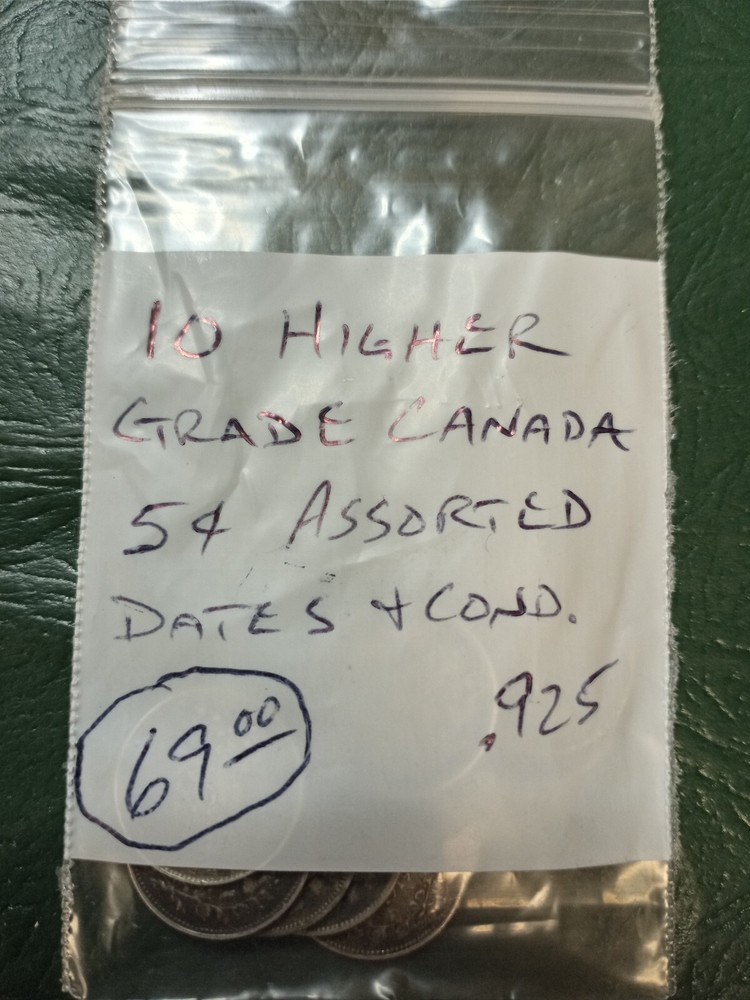 10 HIGHER
GRADE CANADA
5¢ ASSORTED
DATES + COND.
.925
69.00